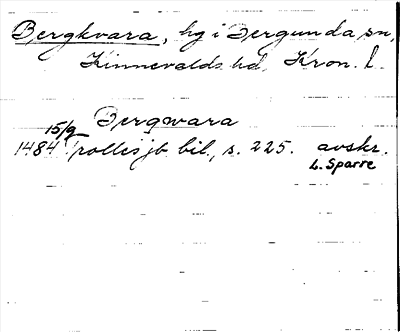 Bergkvara, hg i Bergunda sn,
Kinnevalds hd. Kron. l.
Bergwara
15/9
1484 Trolles jb bil., s. 225. avskr.
L. Sparre